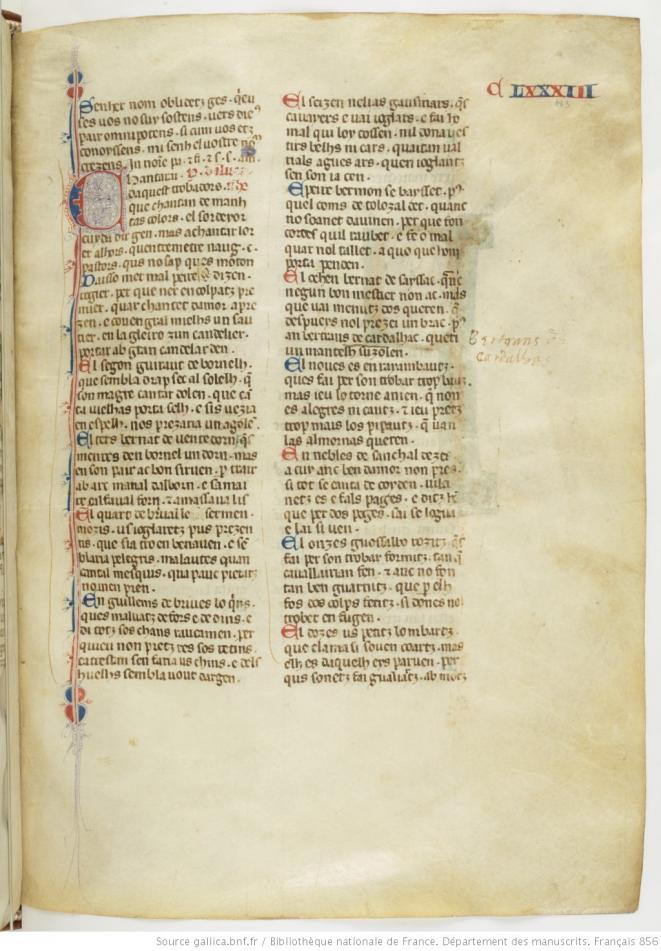 C LXXXIII
183
Senher nom oblicetz ges . q̃eu
ses vos no suy sostens . vers dieˢ
pair omnipotens . si cum vos etz
conoyssens . mi senh el vostre nō
crezens . In noīe pr̄ . ⁊ fi . ⁊ s . s . am̄
Chantarai P. daluer
daquest trobadors .
que chantan de manh
tas colors . el sordeyor
cuyda dir gen . mas achantar lor
er alhors . quentremetre naug . c .
pastors . que no sap ques moton
Daisso mer mal peire . dizen .
rogier . per que ner encolpatz pre
mier . quar chantet damor a pre
zen . e covengral mielhs un sau
tier . en la gleizo zun candelier .
portar ab gran candel arden .
El segon guiraut de bornelh .
que sembla drap sec al solelh . ql̄
son magre cantar dolen . que cā
ta vielhas porta selh . e sis vezia
en espelh . nos prezaria un agolē
El tertz bernat de ventedorn . q̄s
menres den bornel un dorn . mas
en son pair ac bon sirven . p̄ trair
ab arc manal dalborn . e sa mai
re calfaval forn . ⁊ amassava lis
El quart de briva le sermen .
mozis . us ioglaretz pus prezen
tis . que sia tro en benaven . e se
blaria pelegris . malautes quan
cantal mesquis . qua pauc pietatz
no men pren .
En guillems de brives lo q̃ns .
ques malvatz defors e de dins . e
di totz sos chans raucamen . per
quieu non pretz res sos retins .
catrestan sen faria us chins . e dels
huelhs sembla vout dargen .
El seizen nelias gausmars . q̄s
cavayers e vai ioglars . e fai hy
mal qui loy cossen . nil dona ves
tirs belhs ni cars . quaitan val
rials agues ars . quen ioglantz
sen son ia cen .
E peire bermon se baysset . pˢ
quel coms de tolozal det . quanc
no soanet davinen . per que fon
cortes quil raubet . e fe o mal
quar nol tallet . a quo que hom
porta penden .
El ochen bernat de sayssac . q̃nc
negun bon mestier non ac . mas
que vai menutz dos queren . ⁊
despuers nol prezei un brac . pˢ
an bertrans de cardalhac . queri
un mantelh suzolen .
Bertrans de
Cardalhac
El noves es en raimbautz .
ques fai per son trobar trop bautz .
mas ieu lo torne a nien . q̄ non
es alegres ni cautz . ⁊ ieu pretz
trop mais los pipautz . q̄ van
las almornas queren .
En nebles de sanchal dezes .
a cuy anc ben damor non pres .
si tot se canta de coyden . vila
netz es e fals pages . e ditz hō
que per dos poges . sai se logua
e lai si ven .
El onzes guossalbo rozitz . q̄s
fai per son trobar formitz . tan q̄
cavallairian fen . ⁊ anc no fon
tan ben guarnitz . que p̄ elh
fos dos colps feritz . si doncs nol
trobet en fugen .
El dozes us petitz lombartz .
que clama si soven coartz . mas
elh es daquelh eys parven . per
que sonetz fai gualiartz . ab motz
Source gallica.bnf.fr / Bibliothèque nationale de France. Département des manuscrits. Français 856